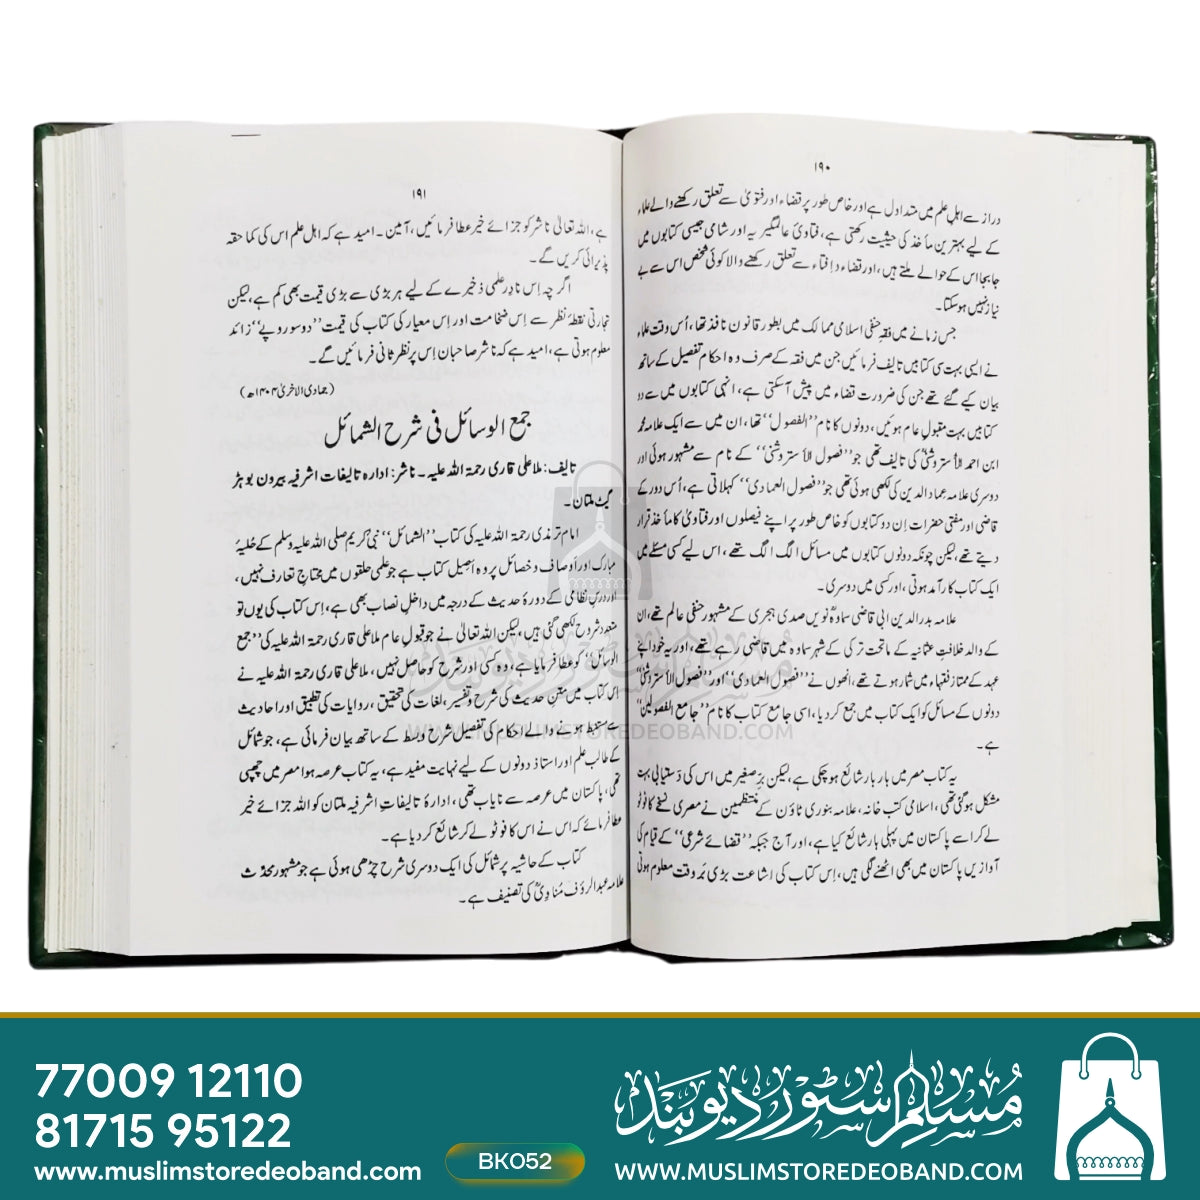 ۱۹۰
دراز سے اہلِ علم میں متداول ہے اور خاص طور پر قضاء اور فتویٰ سے تعلق رکھنے والے علماء
کے لیے بہترین مأخذ کی حیثیت رکھتی ہے، فتاویٰ عالمگیریہ اور شامی جیسی کتابوں میں
جابجا اس کے حوالے ملتے ہیں، اور قضاء و اِفتاء سے تعلق رکھنے والا کوئی شخص اس سے بے
نیاز نہیں ہوسکتا۔
جس زمانے میں فقہِ حنفی اسلامی ممالک میں بطورِ قانون نافذ تھا، اُس وقت علماء
نے ایسی بہت سی کتابیں تالیف فرمائیں جن میں فقہ کے صرف وہ احکام تفصیل کے ساتھ
بیان کیے گئے تھے جن کی ضرورت قضاء میں پیش آسکتی ہے، انہی کتابوں میں سے دو
کتابیں بہت مقبولِ عام ہوئیں، دونوں کا نام ’’الفصول‘‘ تھا، ان میں سے ایک علامہ محمد
ابن احمد الأستروشنیؒ کی تالیف تھی جو ’’فصول الأستروشنی‘‘ کے نام سے مشہور ہوئی اور
دوسری علامہ عماد الدین کی لکھی ہوئی تھی جو ’’فصول العمادی‘‘ کہلاتی ہے، اُس دور کے
قاضی اور مفتی حضرات اِن دو کتابوں کو خاص طور پر اپنے فیصلوں اور فتاویٰ کا مأخذ قرار
دیتے تھے، لیکن چونکہ دونوں کتابوں میں مسائل الگ الگ تھے، اس لیے کسی مسئلے میں
ایک کتاب کارآمد ہوتی، اور کسی میں دوسری۔
علامہ بدر الدین ابی قاضی سماوہؒ نویں صدی ہجری کے مشہور حنفی عالم تھے، ان
کے والد خلافتِ عثمانیہ کے ماتحت ترکی کے شہر سماوہ میں قاضی رہے تھے، اور یہ خود اپنے
عہد کے ممتاز فقہاء میں شمار ہوتے تھے، انھوں نے ’’فصول العمادی‘‘ اور ’’فصول الأستروشنی‘‘
دونوں کے مسائل کو ایک کتاب میں جمع کردیا، اسی جامع کتاب کا نام ’’جامع الفصولین‘‘
ہے۔
یہ کتاب مصر میں بار بار شائع ہوچکی ہے، لیکن برِّصغیر میں اس کی دَستیابی بہت
مشکل ہوگئی تھی، اسلامی کتب خانہ، علامہ بنوری ٹاؤن کے منتظمین نے مصری نسخے کا فوٹو
لے کر اسے پاکستان میں پہلی بار شائع کیا ہے، اور آج جبکہ ’’قضائے شرعی‘‘ کے قیام کی
آوازیں پاکستان میں بھی اٹھنے لگی ہیں، اِس کتاب کی اشاعت بڑی بَر وقت معلوم ہوتی
۱۹۱
ہے، اللہ تعالیٰ ناشر کو جزائے خیر عطا فرمائیں، آمین۔ امید ہے کہ اہلِ علم اس کی کما حقہ
پذیرائی کریں گے۔
اگرچہ اِس نادِر علمی ذخیرے کے لیے ہر بڑی سے بڑی قیمت بھی کم ہے، لیکن
تجارتی نقطۂ نظر سے اِس ضخامت اور اِس معیار کی کتاب کی قیمت ’’دو سو روپے‘‘ زائد
معلوم ہوتی ہے، امید ہے کہ ناشر صاحبان اِس پر نظرِ ثانی فرمائیں گے۔
(جمادی الاخریٰ ۱۴۰۴ھ)
جمع الوسائل فی شرح الشمائل
تالیف: ملا علی قاری رحمۃ اللہ علیہ۔ ناشر: ادارہ تالیفات اشرفیہ بیرون بوہڑ
گیٹ ملتان۔
امام ترمذی رحمۃ اللہ علیہ کی کتاب ’’الشمائل‘‘ نبی کریم صلی اللہ علیہ وسلم کے حلیۂ
مبارک اور اوصاف و خصائل پر وہ اصیل کتاب ہے جو علمی حلقوں میں محتاجِ تعارف نہیں،
اور درسِ نظامی کے دورۂ حدیث کے درجہ میں داخلِ نصاب بھی ہے، اِس کتاب کی یوں تو
متعدد شروح لکھی گئی ہیں، لیکن اللہ تعالیٰ نے جو قبولِ عام ملا علی قاری رحمۃ اللہ علیہ کی ’’جمع
الوسائل‘‘ کو عطا فرمایا ہے، وہ کسی اور شرح کو حاصل نہیں، ملا علی قاری رحمۃ اللہ علیہ نے
اِس کتاب میں متنِ حدیث کی شرح و تفسیر، لغات کی تحقیق، روایات کی تطبیق اور احادیث
سے مستنبط ہونے والے احکام کی تفصیل شرح و بسط کے ساتھ بیان فرمائی ہے، جو شمائل
کے طالب علم اور استاذ دونوں کے لیے نہایت مفید ہے، یہ کتاب عرصہ ہوا مصر میں چھپی
تھی، پاکستان میں عرصہ سے نایاب تھی، ادارۂ تالیفات اشرفیہ ملتان کو اللہ جزائے خیر
عطا فرمائے کہ اس نے اس کا فوٹو لے کر شائع کردیا ہے۔
کتاب کے حاشیہ پر شمائل کی ایک دوسری شرح چڑھی ہوئی ہے جو مشہور محدّث
علامہ عبد الرؤف مُناویؒ کی تصنیف ہے۔
مسلم سٹور دیوبند
WWW.MUSLIMSTOREDEOBAND.COM
77009 12110
81715 95122
www.muslimstoredeoband.com
BK052
مسلم سٹور دیوبند
WWW.MUSLIMSTOREDEOBAND.COM